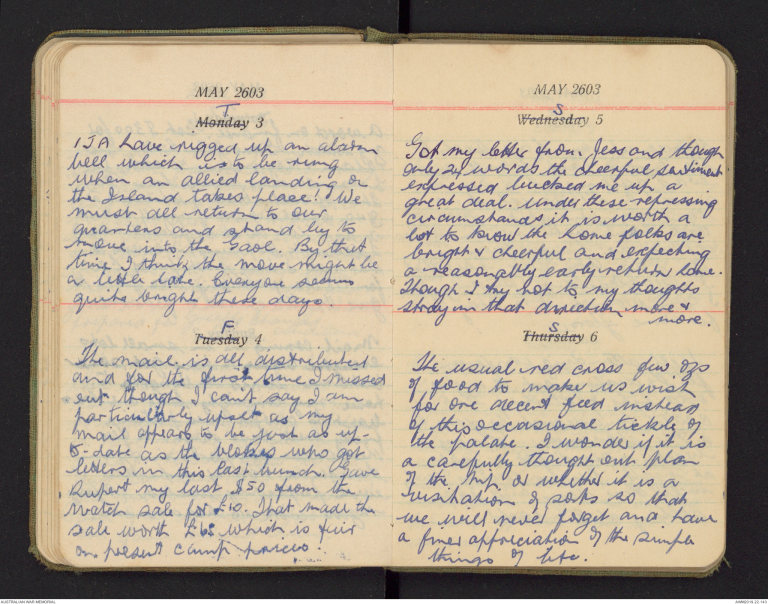 MAY 2603
T
Monday 3
IJA have rigged up an alarm
bell which is to be rung
when an allied landing on
the Island takes place! We
must all return to our
quarters and stand by to
move into the Gaol. By that
time I think the move might be
a little late. Everyone seems
quite bright these days.
F
Tuesday 4
The mail is all distributed
and for the first time I missed
out though I can't say I am
particularly upset as my
mail appears to be just as up-
to-date as the blokes who got
letters in this last bunch. Gave
Rupert my last $50 from the
watch sale for £10. That made the
sale worth which is fair
on present camp prices.
MAY 2603
S
Wednesday 5
Got my letter from Jess and though
only 24 words the cheerful sentiment
expressed bucked me up a
great deal. Under these repressing
circumstances it is worth a
lot to know the home folks are
bright & cheerful and expecting
a reasonably early return home.
Though I try not to, my thoughts
stray in that direction more &
more.
S
Thursday 6
The usual red cross few ozs
of food to make us wish
for one decent feed instead
of this occasional tickle of
the palate. I wonder if it is
a carefully thought out plan
of the or whether it is a
visitation of so that
we will never forget and have
a finer appreciation of the simple
things of life.
AUSTRALIAN WAR MEMORIAL